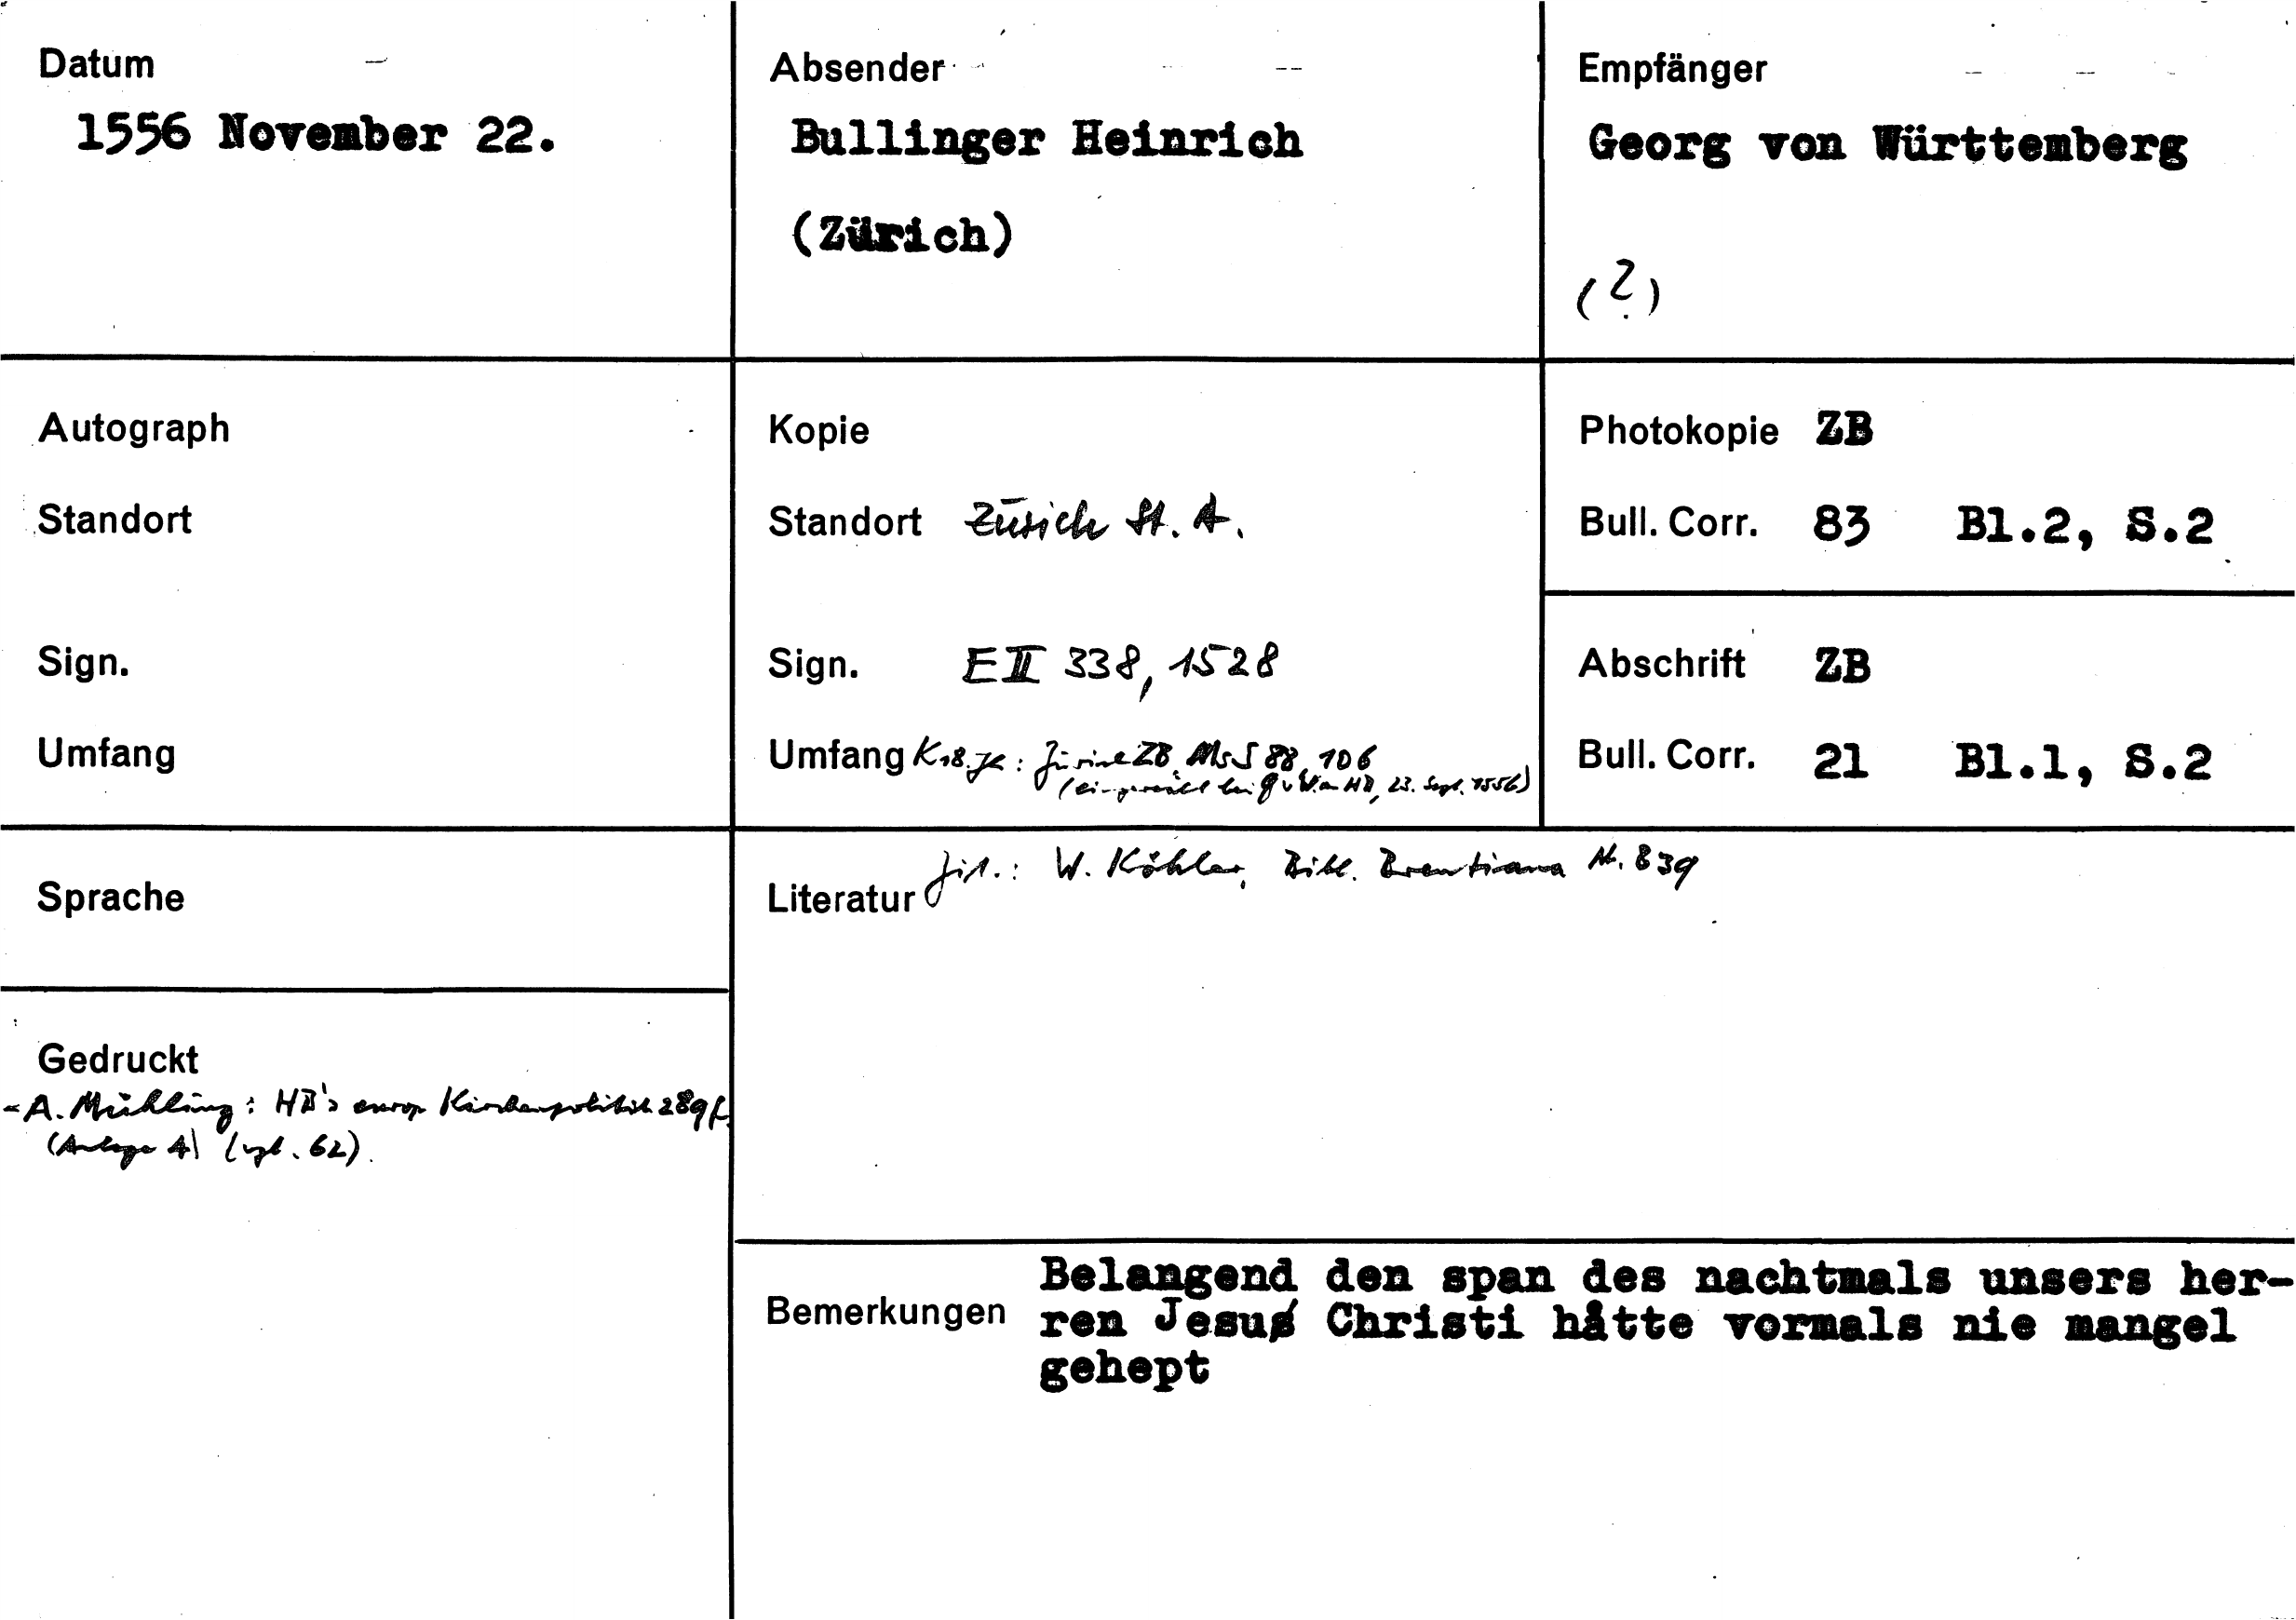 Datum
1556 November 22.
Absender
Bullinger Heinrich
(Zürich)
Empfänger
Georg von Württemberg
(?)
Autograph
Standort
Sign.
Umfang
Kopie
Standort Zürich St. A.
Sign. E II 338, 1528
Umfang K 18. Jh.: Zürich ZB, Ms S 88, 106
(eingereiht bei G v W. an HB, 23. Sept. 1556)
Photokopie ZB
Bull. Corr. 83 Bl.2, S.2
Abschrift ZB
Bull. Corr. 21 Bl.1, S.2
Sprache
Literatur Zit.: W. Köhler, Bibl. Brentiana Nr. 839
Gedruckt
- A. Mühling: HB's europ. Kirchenpolitik 289f.
(Anlage 4) (vgl. 62).
Bemerkungen
Belangend den span des nachtmals unsers her-
ren Jesus Christi håtte vormals nie mangel
gehept